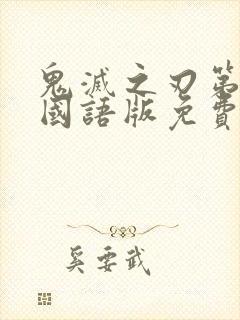 鬼滅之刃第
國語版免費
奚要武